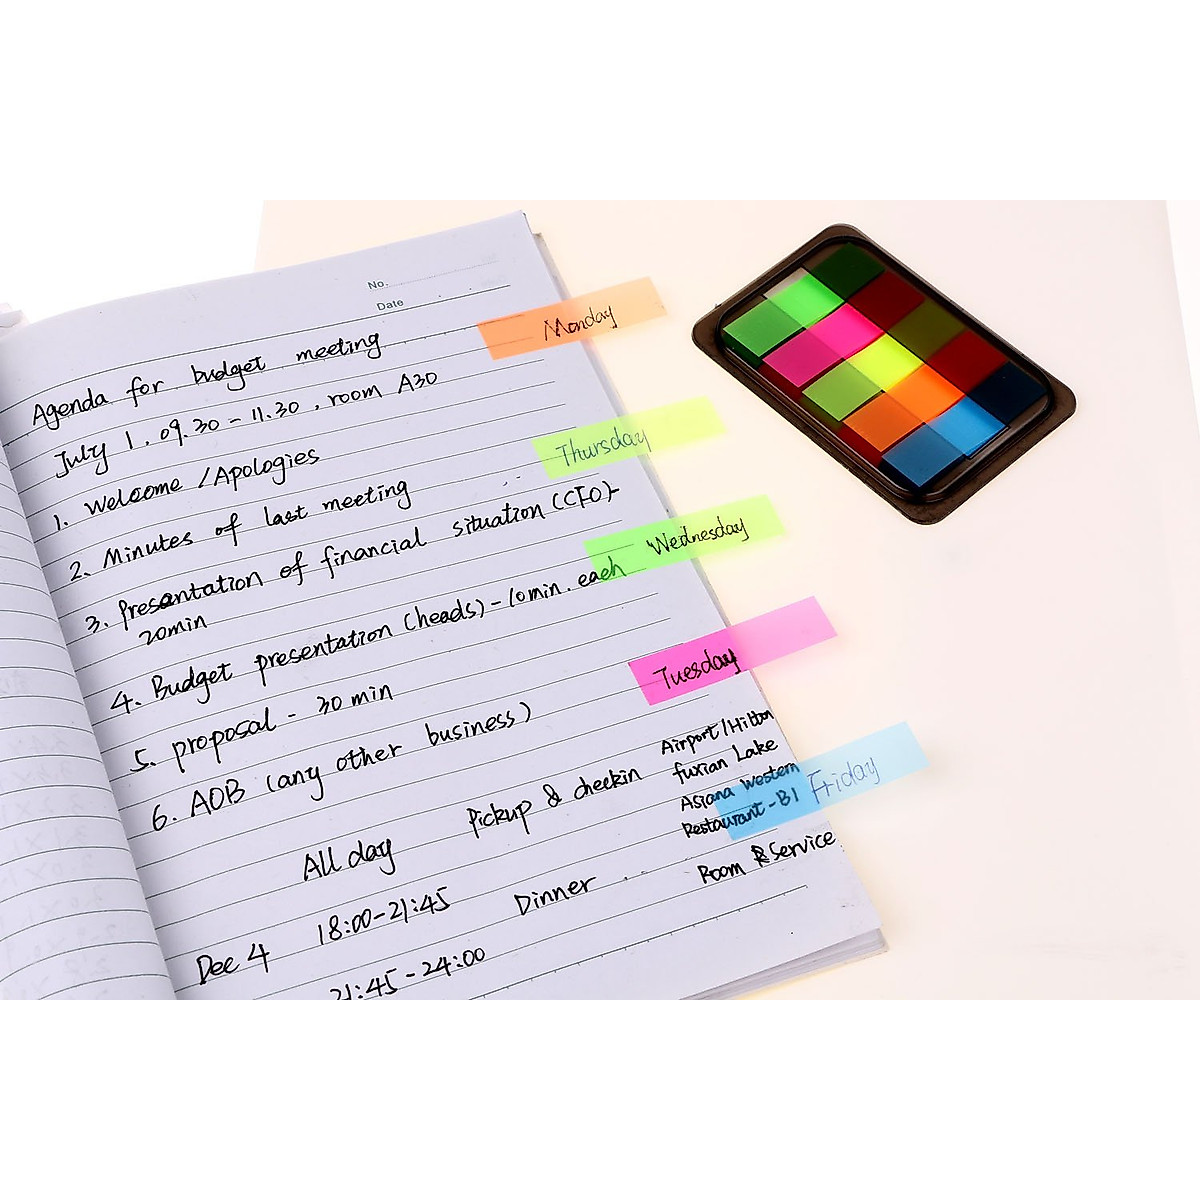 No.
Date
Monday
Agenda for budget meeting
July 1. 09.30 - 11.30, room A30
1. Welcome / Apologies
Thursday
2. Minutes of last meeting
3. Presentation of financial situation (CFO)-
20min
Wednesday
4. Budget presentation (heads) - 10min. each
5. proposal - 30 min
Tuesday
6. AOB (any other business)
All day Pickup & checkin Airport/Hilton
fuxian Lake
Dec 4 18:00-21:45 Dinner Asiana Western
Restaurant-B1
Friday
21:45-24:00 Room Service